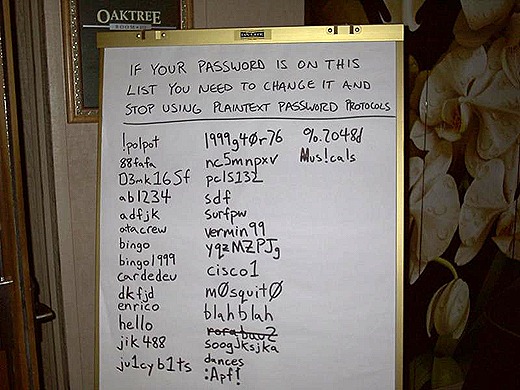 OAKTREE
ROOM
IF YOUR PASSWORD IS ON THIS
LIST YOU NEED TO CHANGE IT AND
STOP USING PLAINTEXT PASSWORD PROTOCOLS
!polpot
88fafa
D3mk165f
ab1234
adfjk
atacrew
bingo
bingo1999
cardedeu
dkfjd
enrico
hello
jik488
ju1cyb1ts
1999g4Ør76
nc5mnpxv
pcls132
sdf
surfpw
vermin99
yqzMZPJg
cisco1
mØsquitØ
blahblah
soogjksjka
dances
:Apf!
%.2048d
Mus!cals